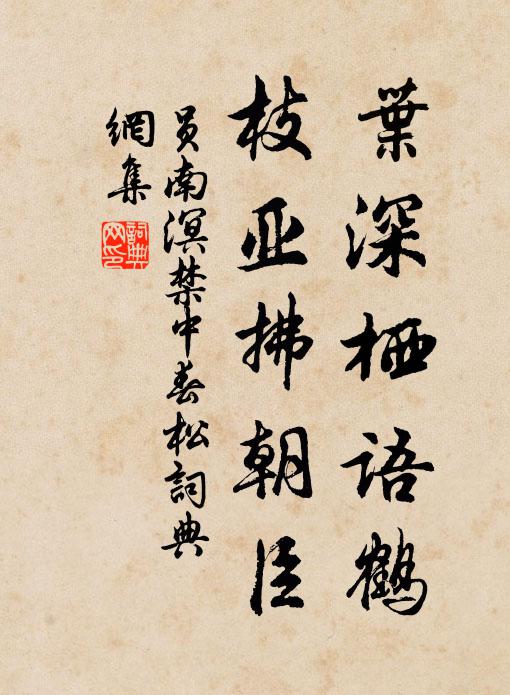 葉深栖語鶴
枝亚拂朝臣
員南溟禁中春松詞典
網集
詞典
网印